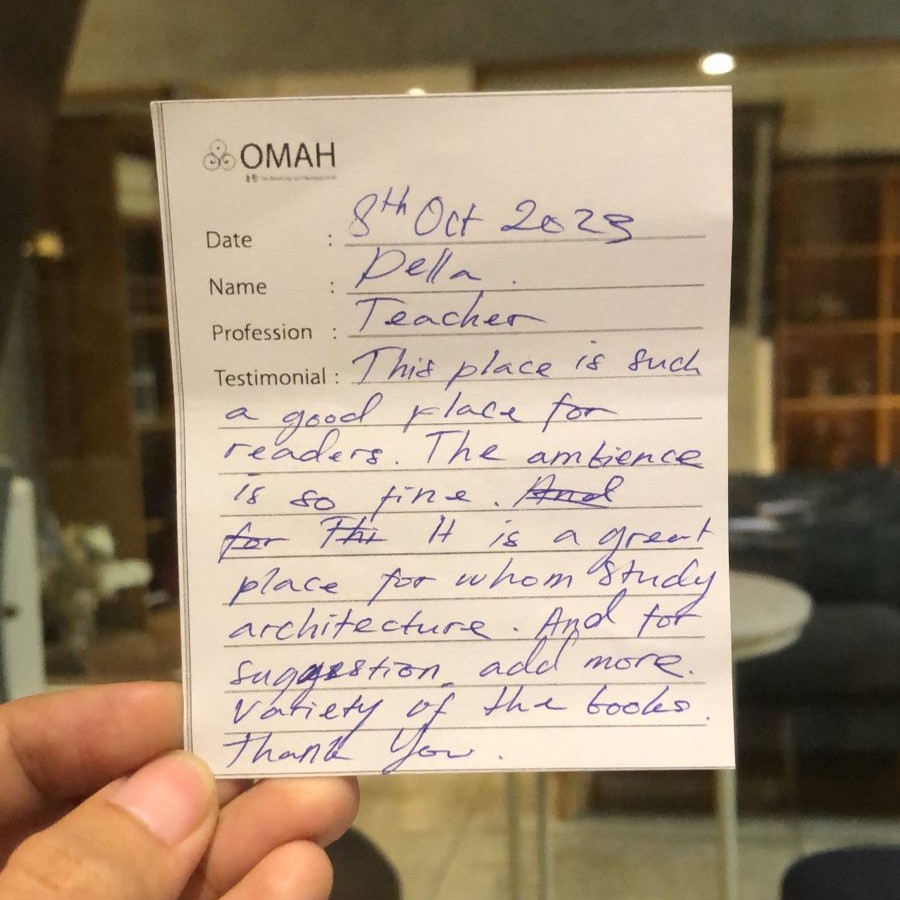 OMAH
Date : 8th Oct 2023
Name : Della.
Profession : Teacher
Testimonial : This place is such
a good place for
readers. The ambience
is so fine. And
for Thi It is a great
place for whom study
architecture. And for
suggestion, add more.
Variety of the books.
Thank You.